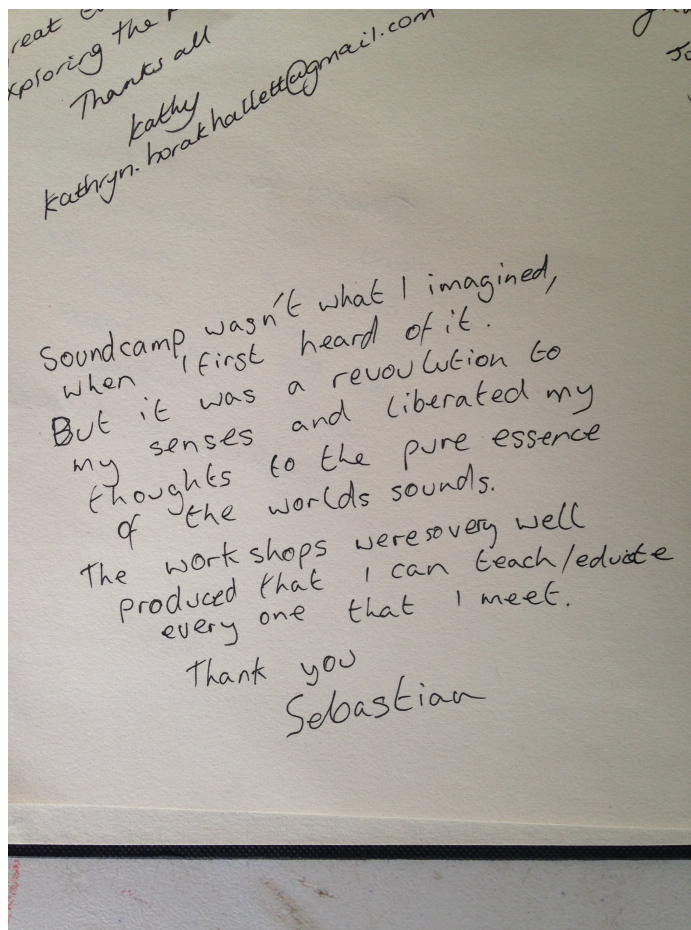 reat
exploring the
Thanks all
Kathy
kathryn.borakhallett@gmail.com
Soundcamp wasn't what I imagined,
when I first heard of it.
But it was a revoulution to
my senses and liberated my
thoughts to the pure essence
of the worlds sounds.
The work shops were so very well
produced that I can teach/educate
every one that I meet.
Thank you
Sebastian